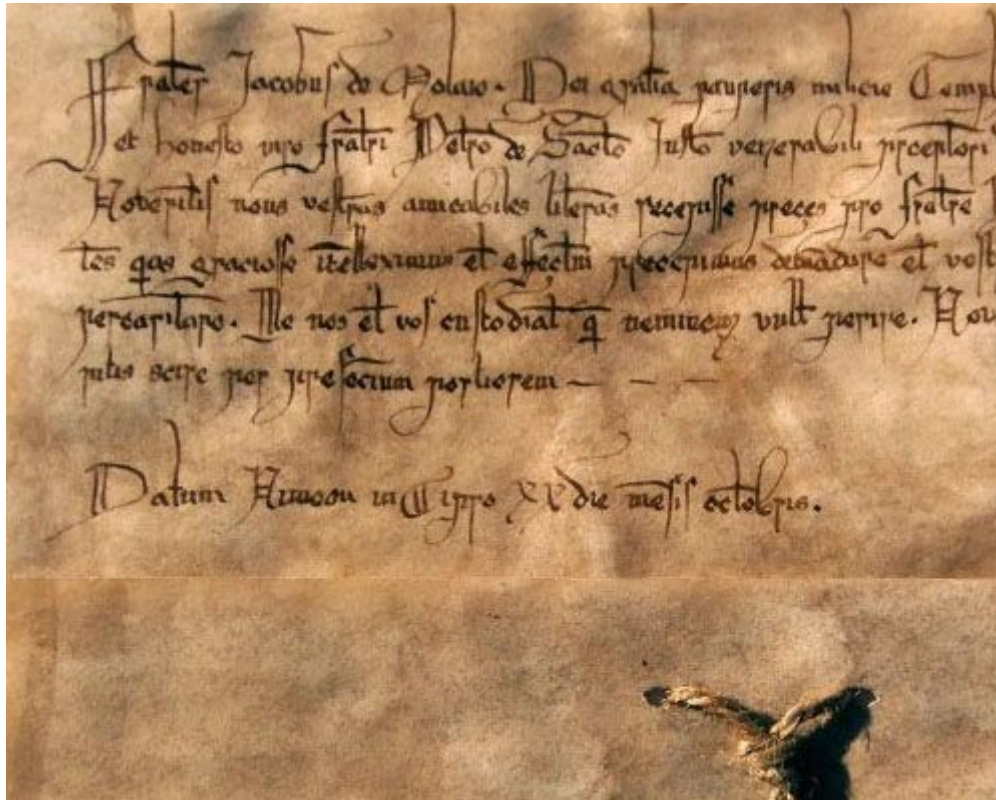 Frater Jacobus de Molaio. Dei gratia pauperis milicie Templ
et honesto viro fratri Petro de Sacto Justo venerabili preceptori
Noveritis nous vestras amicabiles literas recepisse preces pro fratre
tes qas graciose itelleximus et effectui precepimus demadare et vest
Ille nos et vos custodiat q neminem vult perire. Nov
scire per presocium
Datum Nimocu in Cipro XX die mesis octobris.